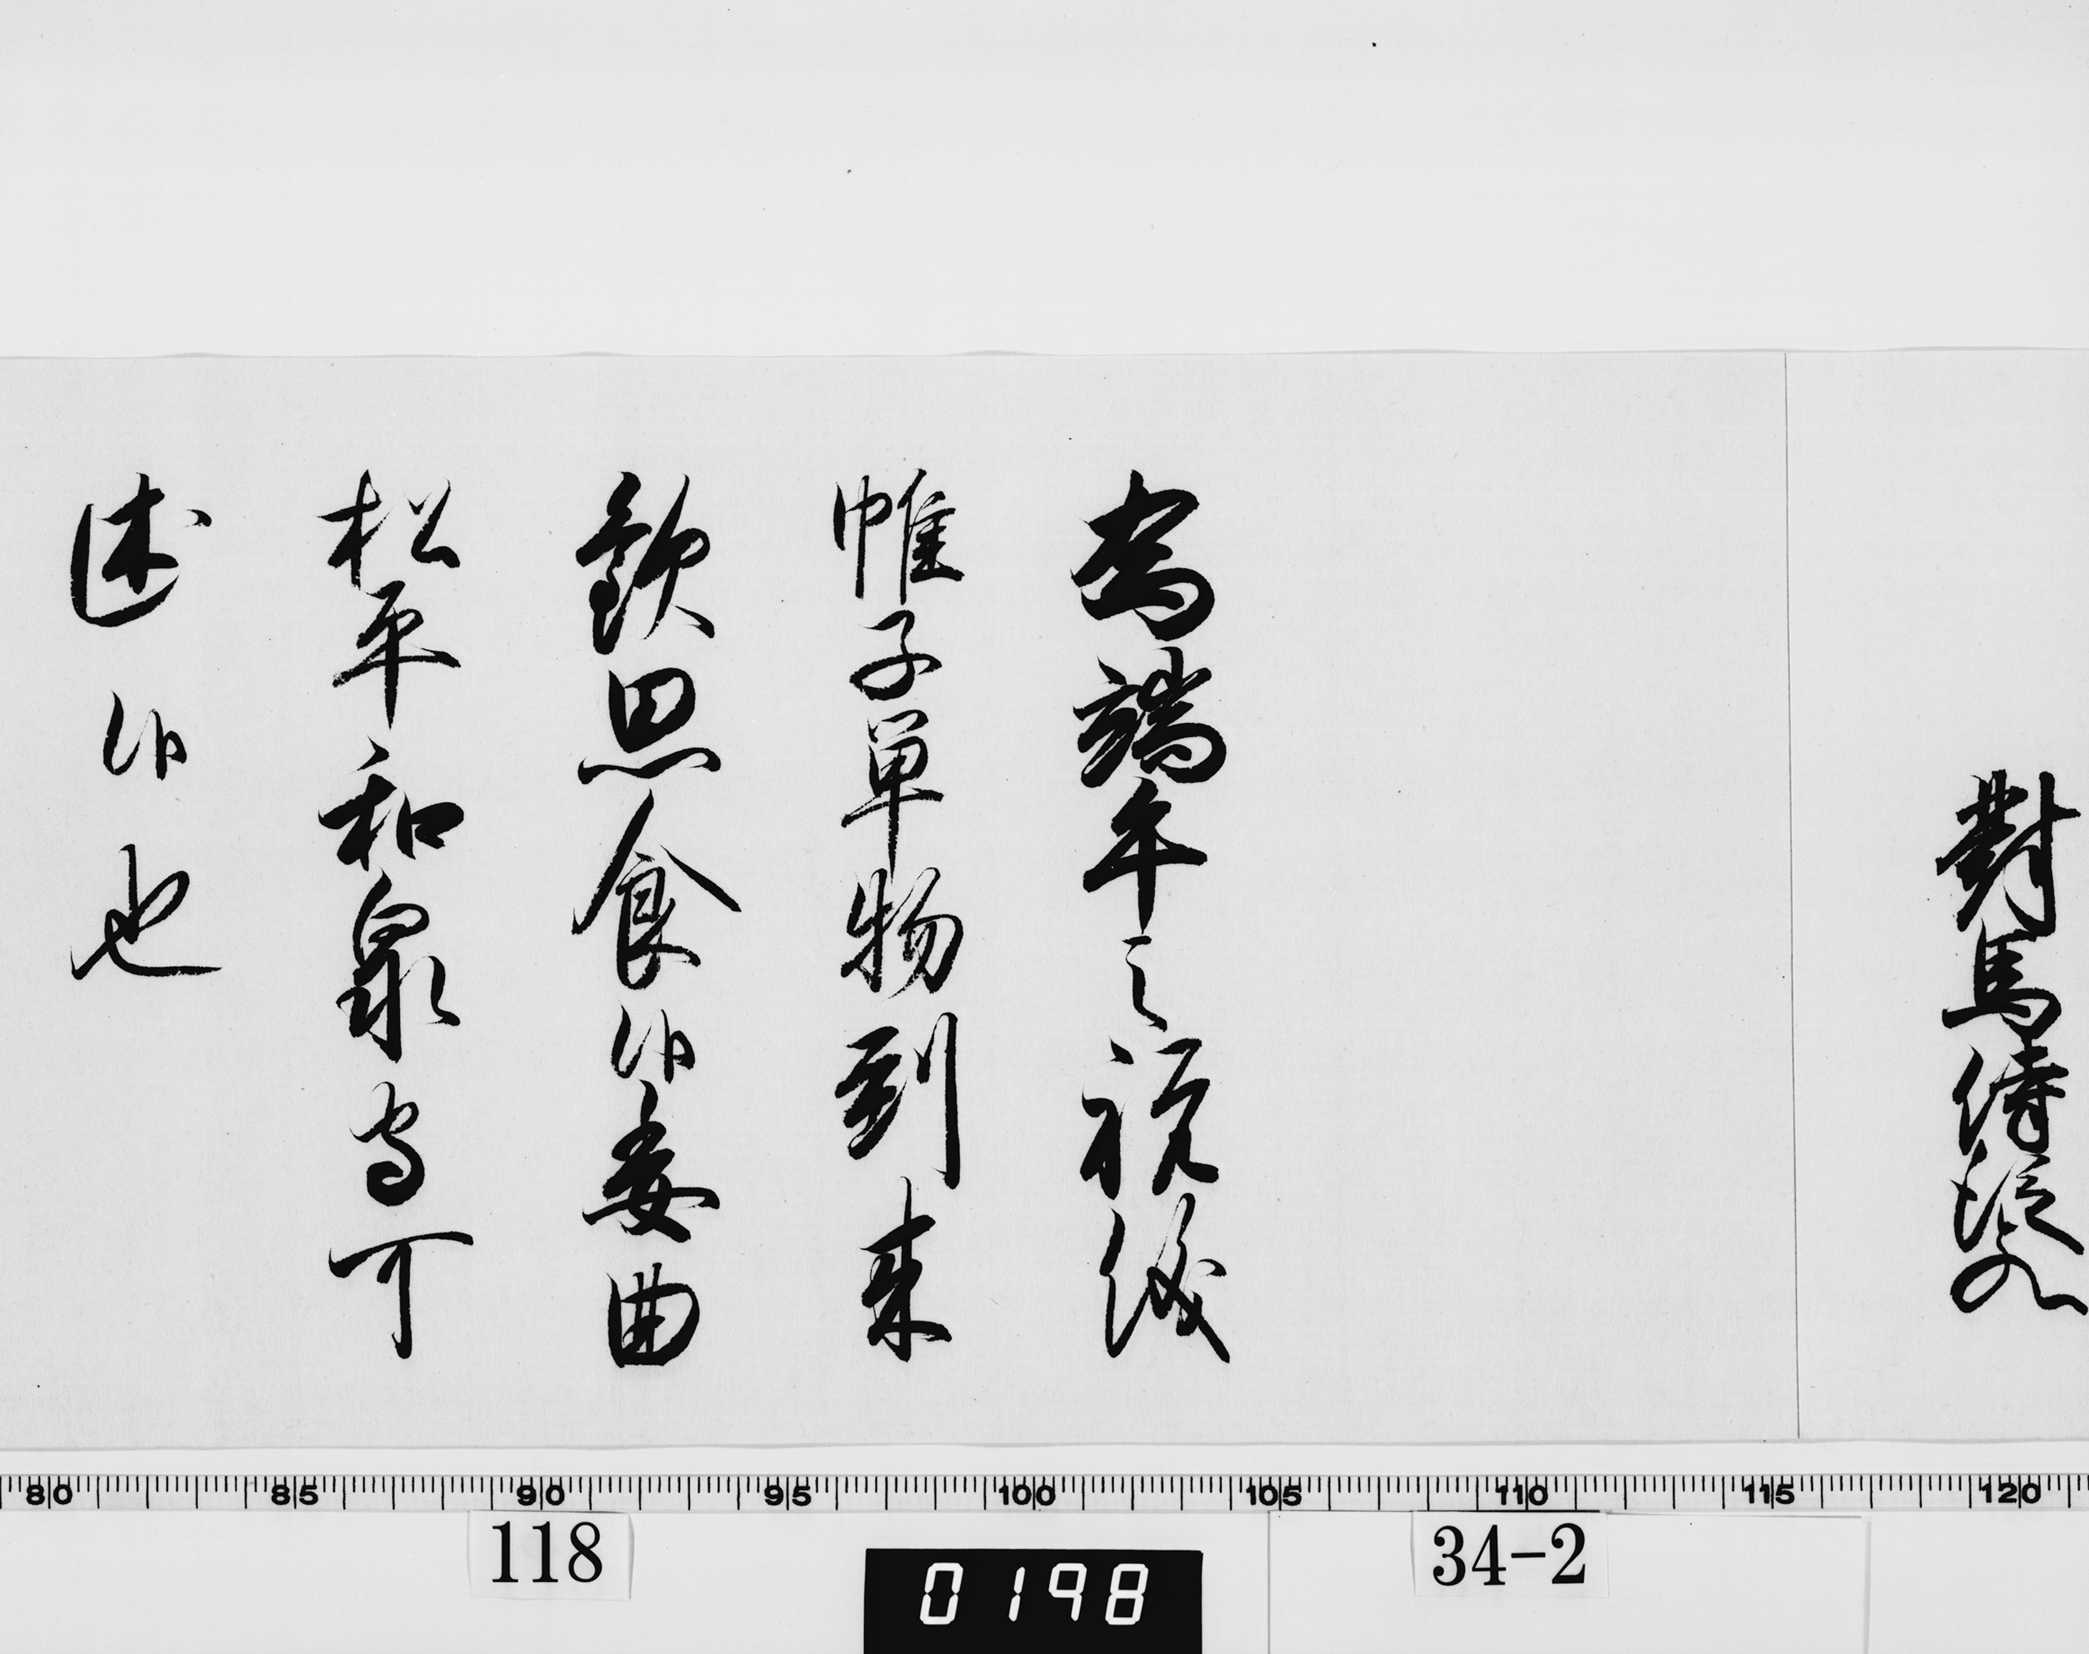 對馬侍從殿
為端午之祝儀
帷子單物到来
歓思食候委曲
松平和泉守可
述候也
80 85 90 95 100 105 110 115 120
118
34-2
0198